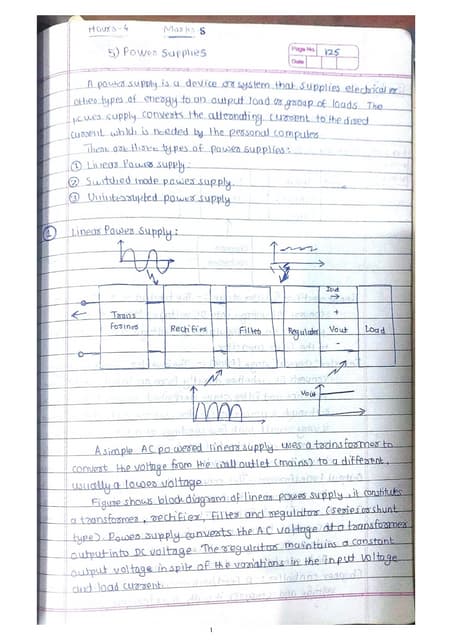 Hours-4 Marks 8
5) Power Supplies
Page No. 125
Date
A power supply is a device or system that supplies electrical or
other types of energy to an output load or group of loads. The
power supply converts the alternating current to the direct
current which is needed by the personal computer.
There are three types of power supplies:
① Linear Power supply.
② Switched mode power supply.
③ Uninterrupted power supply
① Linear Power Supply:
Trans
formes
Rectifies
Filter
Regulator
Iout
+
Vout
-
Load
Vout
A simple AC powered linear supply uses a transformer to
convert the voltage from the wall outlet (mains) to a different,
usually a lower voltage
Figure shows block diagram of linear power supply, it constitutes
a transformer, rectifier, filter and regulator (series or shunt
type). Power supply converts the AC voltage at a transformer
output into DC voltage. The regulator maintains a constant
output voltage in spite of the variations in the input voltage
and load current.
1